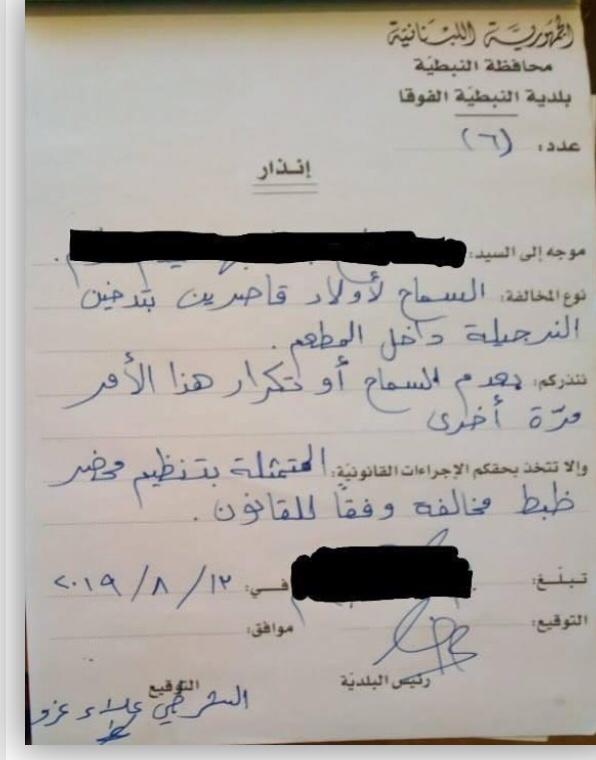 الجمهورية اللبنانية
محافظة النبطية
بلدية النبطية الفوقا
عدد: (٦)
إنذار
موجه إلى السيد:
نوع المخالفة: السماح لأولاد قاصرين بتدخين
النرجيلة داخل المطعم.
ننذركم: بعدم السماح أو تكرار هذا الأمر
مرّة أخرى
والا تتخذ بحقكم الإجراءات القانونيّة: المتمثلة بتنظيم محضر
ظبط مخالفة وفقاً للقانون.
تبلّغ: في: ١٢ / ٨ / ٢٠١٩
التوقيع: موافق:
رئيس البلديّة التوقيع
الشرطي علاء غزو